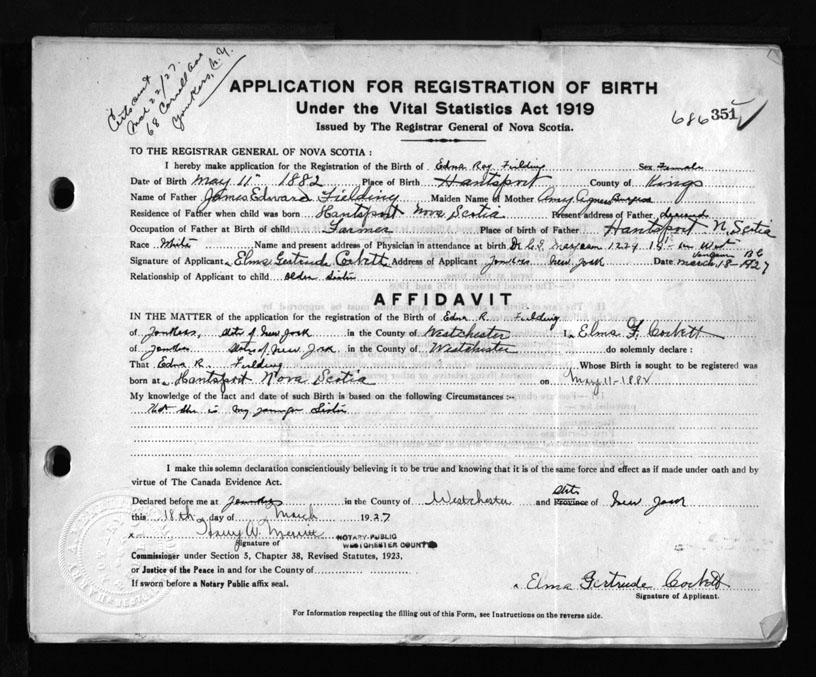 Certs sent
Mar 22/27.
68 Cornell Ave
Yonkers, N.Y.
APPLICATION FOR REGISTRATION OF BIRTH
Under the Vital Statistics Act 1919
Issued by The Registrar General of Nova Scotia.
686 351
TO THE REGISTRAR GENERAL OF NOVA SCOTIA :
I hereby make application for the Registration of the Birth of Edna Ray Fielding Sex Female
Date of Birth May 11 1882 Place of Birth Hantsport County of Kings
Name of Father James Edward Fielding Maiden Name of Mother Amey Agnes Burgess
Residence of Father when child was born Hantsport Nova Scotia Present address of Father deceased
Occupation of Father at Birth of child Farmer Place of birth of Father Hantsport N. Scotia
Race White Name and present address of Physician in attendance at birth Dr. 1224 West
Signature of Applicant Elma Gertrude Corkett Address of Applicant Yonkers New York Date March 18-1927
Relationship of Applicant to child older sister
AFFIDAVIT
IN THE MATTER of the application for the registration of the Birth of Edna R. Fielding
of Yonkers, State of New York in the County of Westchester I, Elma F. Corkett
of Yonkers State of New York in the County of Westchester do solemnly declare :
That Edna R. Fielding Whose Birth is sought to be registered was
born at Hantsport Nova Scotia on May 11-1882
My knowledge of the fact and date of such Birth is based on the following Circumstances :-
That she is my younger sister
I make this solemn declaration conscientiously believing it to be true and knowing that it is of the same force and effect as if made under oath and by
virtue of The Canada Evidence Act.
Declared before me at Yonkers in the County of Westchester and State Province of New York
this 18th day of March 1927
x Harry W.
Signature of NOTARY PUBLIC
WESTCHESTER COUNTY
Commissioner under Section 5, Chapter 38, Revised Statutes, 1923,
or Justice of the Peace in and for the County of
If sworn before a Notary Public affix seal.
x Elma Gertrude Corkett
Signature of Applicant.
For Information respecting the filling out of this Form, see Instructions on the reverse side.